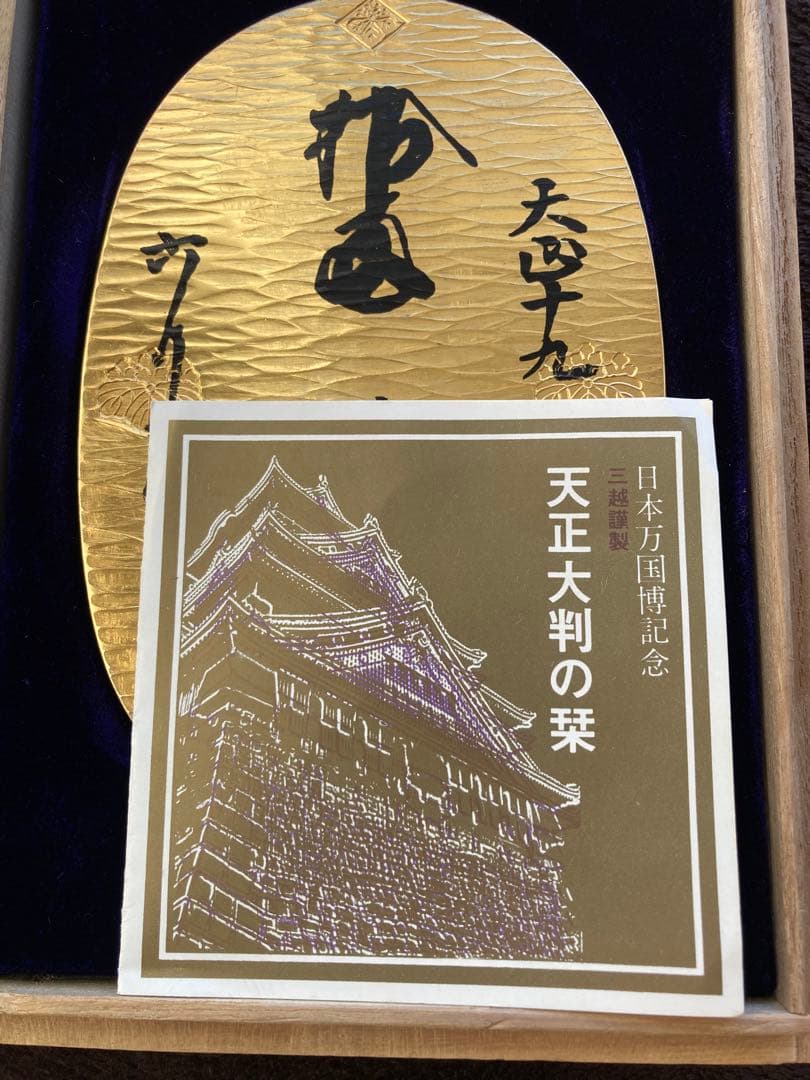 天正十九
六月
日本万国博記念
三越謹製
天正大判の栞